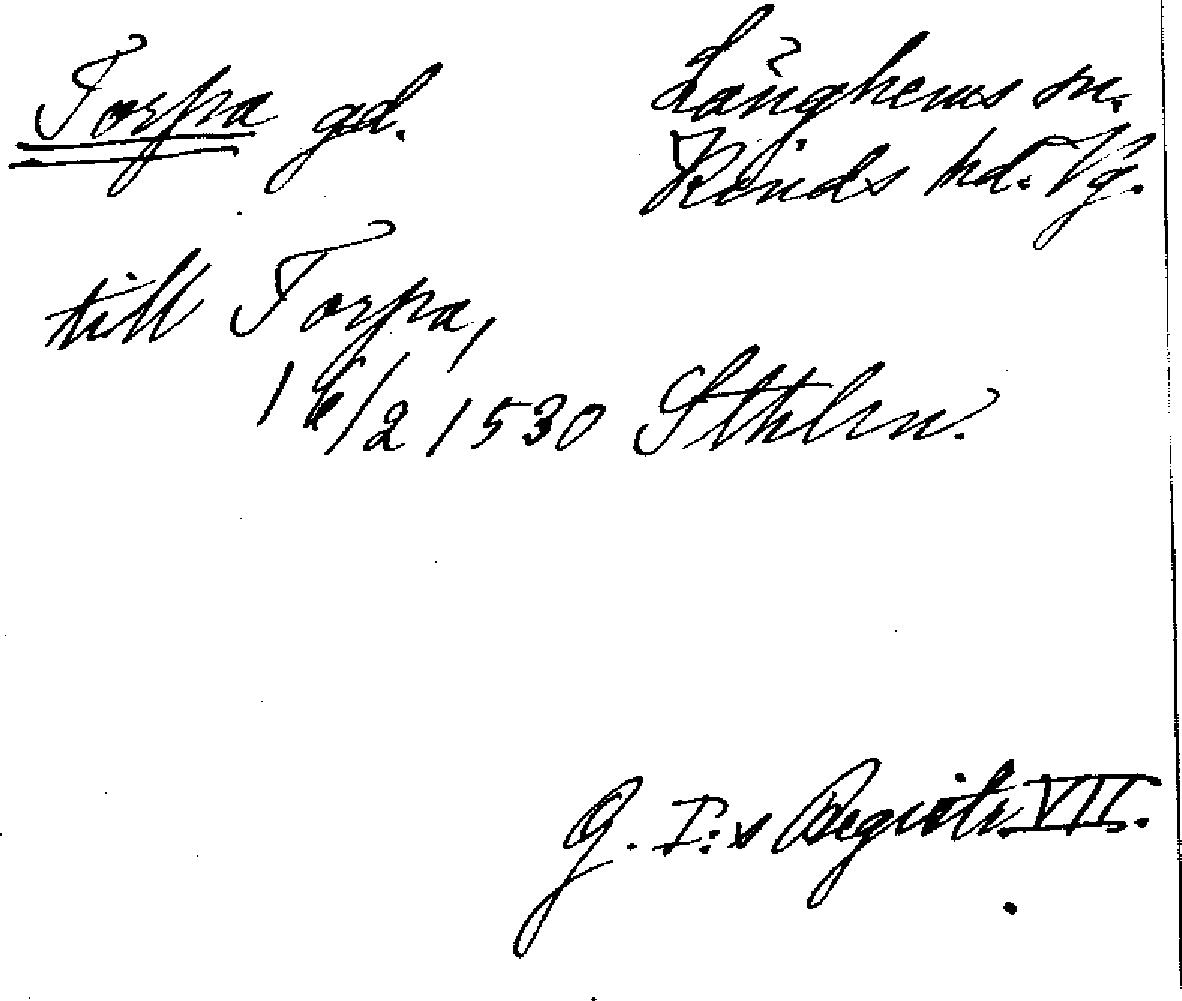 Torpa gd.
Länghems sn.
Kinds hd. Vg.
till Torpa,
16/2 1530 Sthlm.
G. I:s Registr. VII.